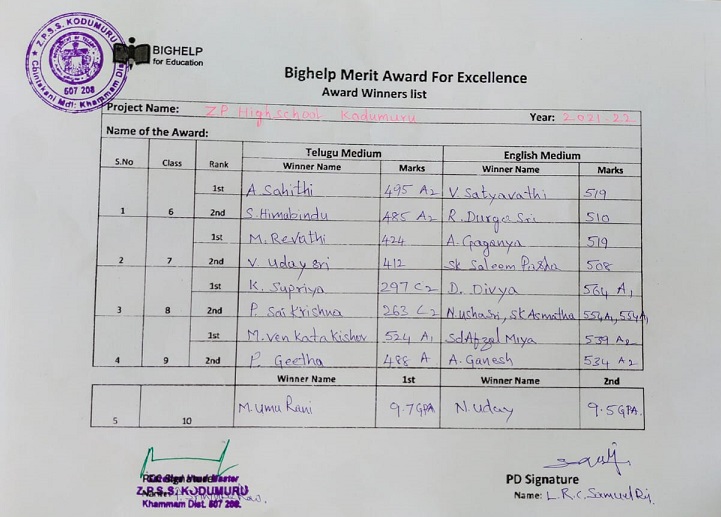 Z.P.S.S. KODUMURU
Chintakani Mdl: Khammam Dist.
507 208
BIGHELP
for Education
Bighelp Merit Award For Excellence
Award Winners list
Project Name: ZP Highschool Kodumuru Year: 2021-22
Name of the Award:
Telugu Medium English Medium
S.No Class Rank Winner Name Marks Winner Name Marks
1st A. Sahithi 495 A2 V Satyavathi 519
1 6 2nd S. Himabindu 485 A2 R. Durga Sri 510
1st M. Revathi 424 A. Gaganya 519
2 7 2nd V. Uday sri 412 Sk Saleem Pasha 508
1st K. Supriya 297 C2 D. Divya 564 A1
3 8 2nd P. Sai Krishna 263 C2 N. Usha Sri, SK Asmatha 554 A1, 554 A1
1st M. Ven Kata Kishor 524 A1 Sd Afzal Miya 539 A2
4 9 2nd P. Geetha 488 A A. Ganesh 534 A2
Winner Name 1st Winner Name 2nd
5 10 M. Uma Rani 9.7 GPA N. Uday 9.5 GPA.
Z.P.S.S. KODUMURU
Khammam Dist. 507 208.
PD Signature
Name: L.R.C. Samuel Raj